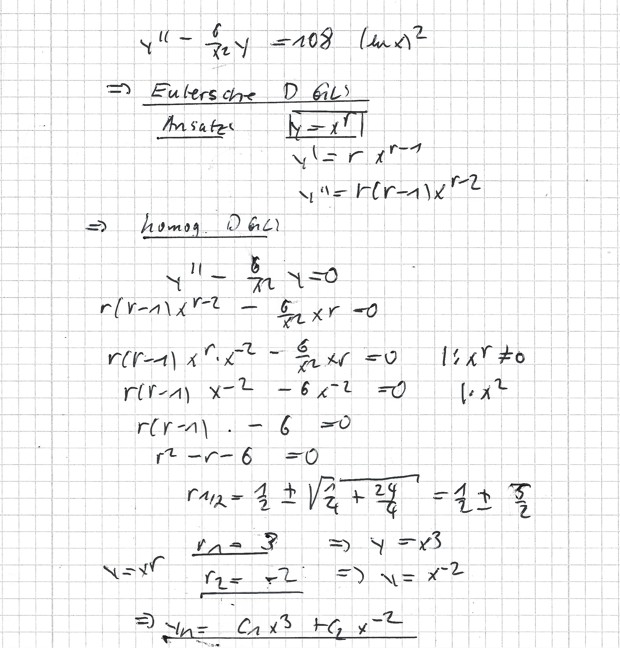 y'' - 6/x² y = 108 (ln x)²
=> Eulersche DGL)
Ansatz: y = x^r
y' = r x^(r-1)
y'' = r(r-1)x^(r-2)
=> homog. DGL)
y'' - 6/x² y = 0
r(r-1)x^(r-2) - 6/x² x^r = 0
r(r-1) x^r · x^-2 - 6/x² x^r = 0 |: x^r ≠ 0
r(r-1) x^-2 - 6x^-2 = 0 |· x²
r(r-1) · - 6 = 0
r² - r - 6 = 0
r1/2 = 1/2 ± √(1/4 + 24/4) = 1/2 ± 5/2
r1 = 3 => y = x³
y = x^r r2 = -2 => y = x^-2
=> yh = C1 x³ + C2 x^-2